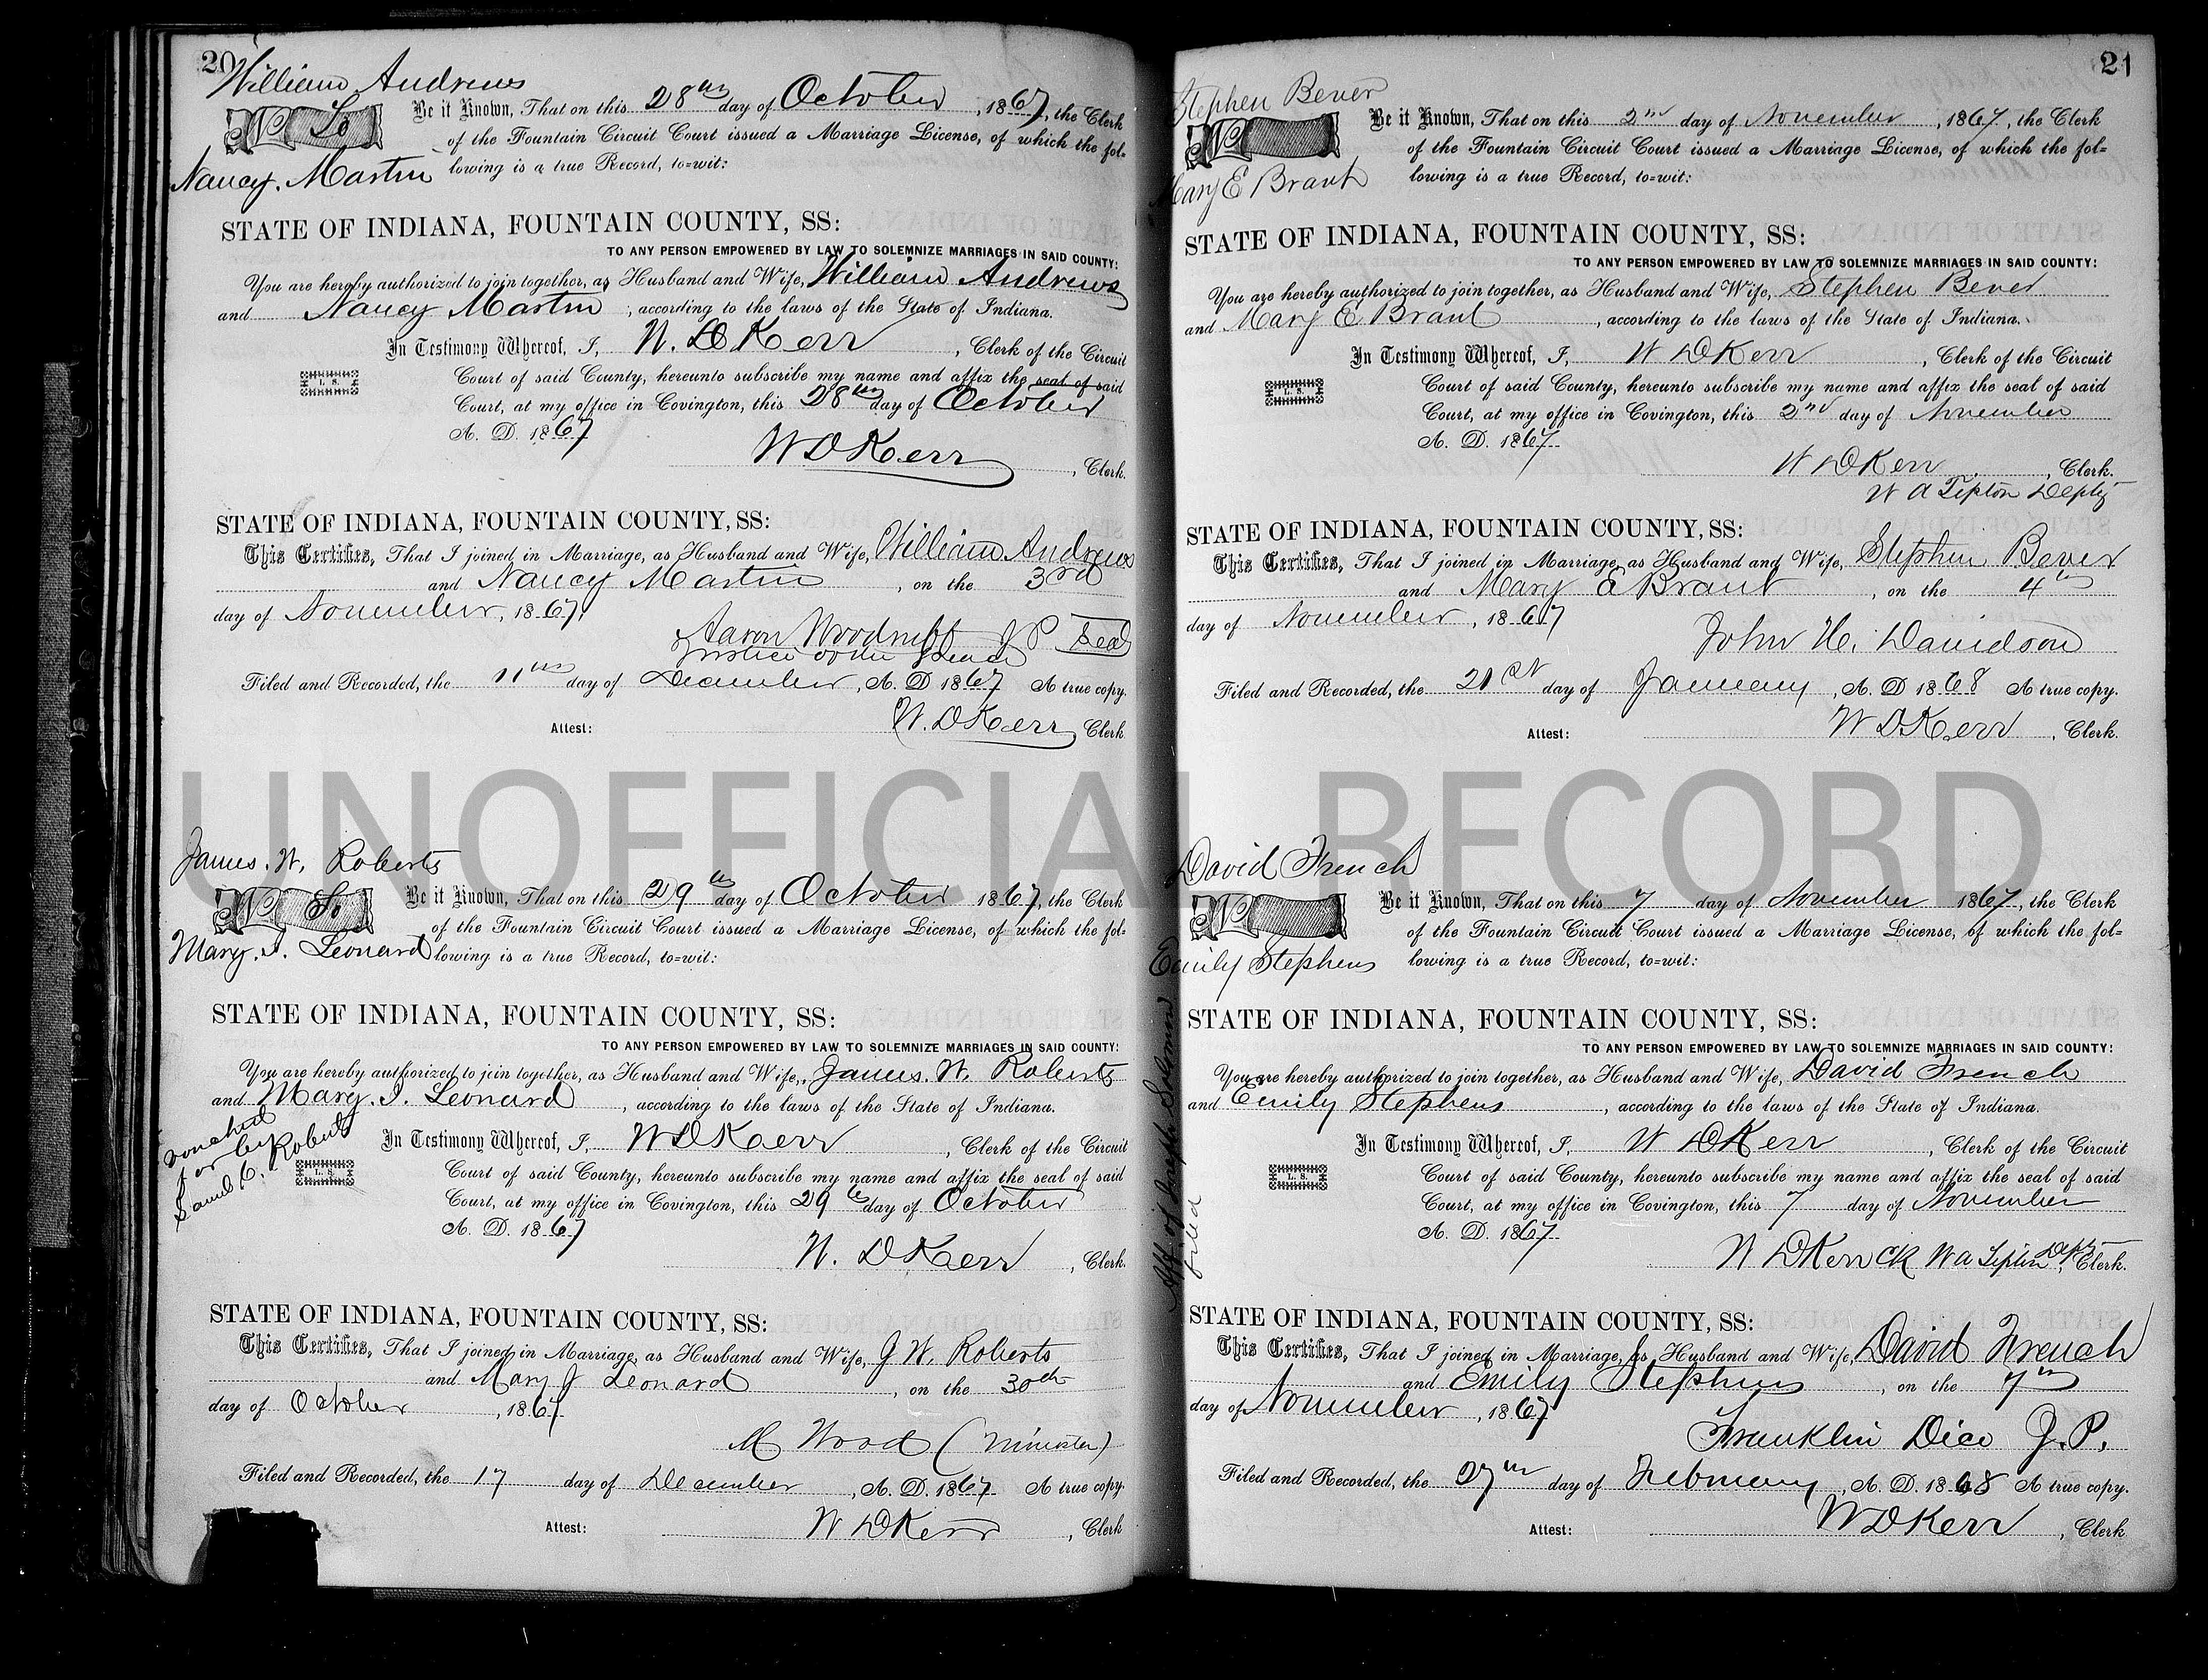 20
William Andrews
No To
Nancy. Martin
Be it Known, That on this 28th day of October, 1867, the Clerk
of the Fountain Circuit Court issued a Marriage License, of which the fol=
lowing is a true Record, to=wit:
STATE OF INDIANA, FOUNTAIN COUNTY, SS:
TO ANY PERSON EMPOWERED BY LAW TO SOLEMNIZE MARRIAGES IN SAID COUNTY:
You are hereby authorized to join together, as Husband and Wife, William Andrews
and Nancy Martin, according to the laws of the State of Indiana.
In Testimony Whereof, I, W. D Kerr, Clerk of the Circuit
L. S.
Court of said County, hereunto subscribe my name and affix the seal of said
Court, at my office in Covington, this 28th day of October
A. D. 1867
W D Kerr, Clerk.
STATE OF INDIANA, FOUNTAIN COUNTY, SS:
This Certifies, That I joined in Marriage, as Husband and Wife, William Andrews
and Nancy Martin, on the 3rd
day of November, 1867,
Aaron Woodruff J P Seal
Justice of the Peace
Filed and Recorded, the 11th day of December, A. D 1867 A true copy.
Attest: W. D Kerr, Clerk
James. W, Roberts
No To
Mary. J. Leonard
Be it Known, That on this 29th day of October 1867, the Clerk
of the Fountain Circuit Court issued a Marriage License, of which the fol=
lowing is a true Record, to=wit:
STATE OF INDIANA, FOUNTAIN COUNTY, SS:
TO ANY PERSON EMPOWERED BY LAW TO SOLEMNIZE MARRIAGES IN SAID COUNTY:
You are hereby authorized to join together, as Husband and Wife, James. W. Roberts
and Mary. J. Leonard, according to the laws of the State of Indiana.
vouched
for by
Saml C. Roberts
In Testimony Whereof, I, W D Kerr, Clerk of the Circuit
L. S.
Court of said County, hereunto subscribe my name and affix the seal of said
Court, at my office in Covington, this 29th day of October
A. D. 1867
W. D Kerr, Clerk.
STATE OF INDIANA, FOUNTAIN COUNTY, SS:
This Certifies, That I joined in Marriage, as Husband and Wife, J W. Roberts
and Mary J Leonard, on the 30th
day of October, 1867
M Wood (Minister)
Filed and Recorded, the 17 day of December, A. D. 1867 A true copy.
Attest: W D Kerr, Clerk
21
Stephen Bever
No
Mary E Brant
Be it Known, That on this 2nd day of November, 1867, the Clerk
of the Fountain Circuit Court issued a Marriage License, of which the fol=
lowing is a true Record, to=wit:
STATE OF INDIANA, FOUNTAIN COUNTY, SS:
TO ANY PERSON EMPOWERED BY LAW TO SOLEMNIZE MARRIAGES IN SAID COUNTY:
You are hereby authorized to join together, as Husband and Wife, Stephen Bever
and Mary E Brant, according to the laws of the State of Indiana.
In Testimony Whereof, I, W D Kerr, Clerk of the Circuit
L. S.
Court of said County, hereunto subscribe my name and affix the seal of said
Court, at my office in Covington, this 2nd day of November
A. D. 1867
W D Kerr, Clerk.
W A Tipton Depty
STATE OF INDIANA, FOUNTAIN COUNTY, SS:
This Certifies, That I joined in Marriage, as Husband and Wife, Stephen Bever
and Mary E Brant, on the 4th
day of November, 1867
John H. Davidson
Filed and Recorded, the 21st day of January, A. D 1868 A true copy.
Attest: W D Kerr, Clerk.
David French
No
Emily Stephens
Be it Known, That on this 7 day of November 1867, the Clerk
of the Fountain Circuit Court issued a Marriage License, of which the fol=
lowing is a true Record, to=wit:
Aff. of Joseph Solomon
filed
STATE OF INDIANA, FOUNTAIN COUNTY, SS:
TO ANY PERSON EMPOWERED BY LAW TO SOLEMNIZE MARRIAGES IN SAID COUNTY:
You are hereby authorized to join together, as Husband and Wife, David French
and Emily Stephens, according to the laws of the State of Indiana.
In Testimony Whereof, I, W D Kerr, Clerk of the Circuit
L. S.
Court of said County, hereunto subscribe my name and affix the seal of said
Court, at my office in Covington, this 7 day of November
A. D. 1867
W D Kerr Ck W A Tipton Depty, Clerk.
STATE OF INDIANA, FOUNTAIN COUNTY, SS:
This Certifies, That I joined in Marriage, as Husband and Wife, David French
and Emily Stephens, on the 7th
day of November, 1867
Franklin Dice J. P.
Filed and Recorded, the 27th day of February, A. D. 1868 A true copy.
Attest: W D Kerr, Clerk
UNOFFICIAL RECORD